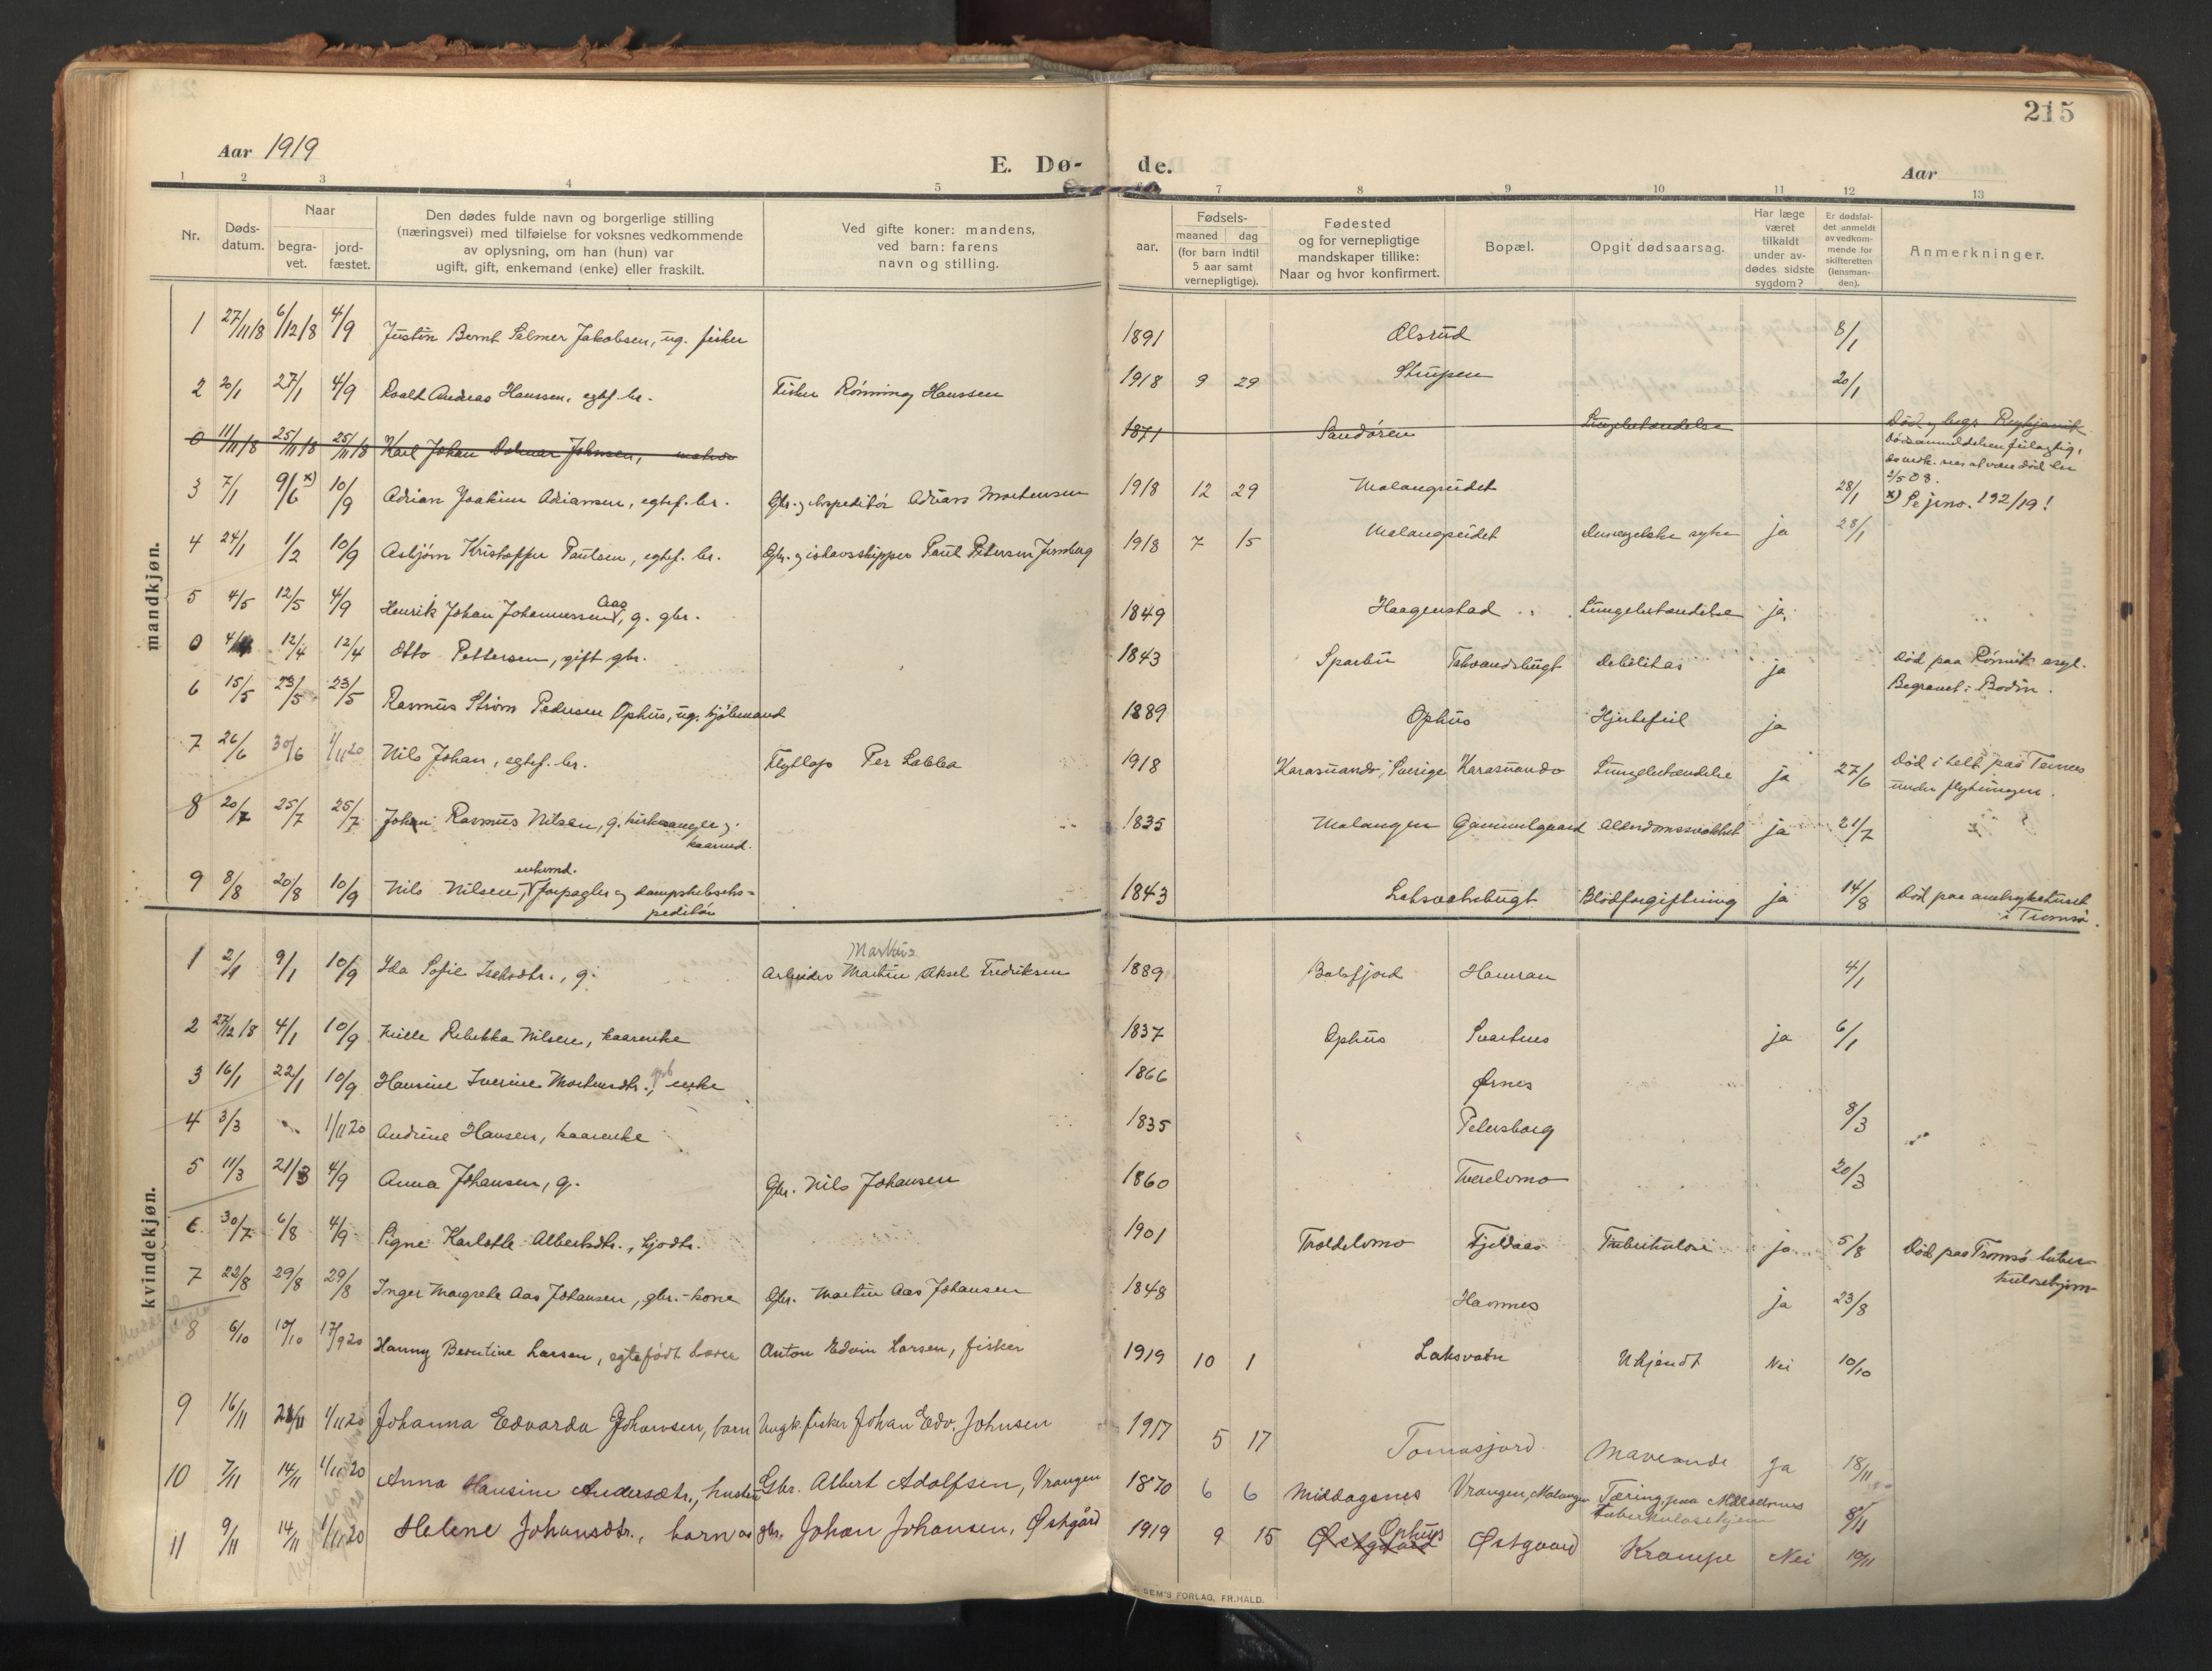 215
Aar 1919
E. Dø- de.
Aar
1 2 3 4 5 7 8 9 10 11 12 13
Nr.
Døds-
datum.
Naar
begra-
vet.
jord-
fæstet.
Den dødes fulde navn og borgerlige stilling
(næringsvei) med tilføielse for voksnes vedkommende
av oplysning, om han (hun) var
ugift, gift, enkemand (enke) eller fraskilt.
Ved gifte koner: mandens,
ved barn: farens
navn og stilling.
aar.
Fødsels-
maaned dag
(for barn indtil
5 aar samt
vernepligtige).
Fødested
og for vernepligtige
mandskaper tillike:
Naar og hvor konfirmert.
Bopæl.
Opgit dødsaarsag.
Har læge
været
tilkaldt
under av-
dødes sidste
sygdom?
Er dødsfal-
det anmeldt
av vedkom-
mende for
skifteretten
(lensman-
den).
Anmerkninger.
mandkjøn.
1 27/11 18 6/12 18 4/9 Justin Bernt Selmer Jakobsen, ug. fisker 1891 Olsrud 8/1
2 20/1 27/1 4/9 Andreas Hanssen, egtef. br. Fisker Rønning Hanssen 1918 9 29 Strupen 20/1
0 11/11 18 25/11 18 25/11 18 Karl Johan Johnsen, 1871 Sandøren Lungebetændelse Død og begr. Reykjavik
3 7/1 9/6 x) 10/9 Adrian Joakim Adriansen, egtef. br. Gbr. og ekspeditør Adrians Mortensen 1918 12 29 Malangseidet 28/1 x) Se jrno. 192/19!
4 24/1 1/2 10/9 Asbjørn Kristoffer Paulsen, egtef. br. Gbr. og ishavsskipper Paul Petersen Jernberg 1918 7 15 Malangseidet Den engelske syke ja 28/1
5 4/5 12/5 4/9 Henrik Johan Johannessen Aas, g. gbr. 1849 Haagenstad Lungebetændelse ja
0 12/4 12/4 Otto Pettersen, gift gbr. 1843 Sparbu Takvandsbugt debilitas ja Død paa Rønvik asyl.
Begravet i Bodin.
6 15/5 23/5 23/5 Rasmus Strøm Pedersen Ophus, ug. hjølemand 1889 Ophus Hjertefeil ja
7 26/6 30/6 1/11 20 Nils Johan, egtef. br. Flytlap Per Labba 1918 Karasuando, Sverige Karasuando Lungebetændelse ja 27/6 Død i telt paa Tennes
under flytningen.
8 20/7 25/7 25/7 Johan Rasmus Nilsen, g. kirkesanger og
kaarmd. 1835 Malangen Gammelgaard Alderdomssvakhet ja 21/7
9 8/8 20/8 10/9 Nils Nilsen, enkemd. forpagter og dampskibseks-
peditør 1843 Laksvatnbugt Blodforgiftning ja 14/8 Død paa amtsykehuset
i Tromsø.
kvindekjøn.
1 2/1 9/1 10/9 Ida Sofie Isaksdtr., g. Arbeider Martin Aksel Fredriksen Markus 1889 Balsfjord Hamran 4/1
2 27/12 18 4/1 10/9 Mille Rebekka Nilsen, kaarenke 1837 Ophus Svartnes ja 6/1
3 16/1 22/1 10/9 Hansine Iverine Mortensdtr., enke 1866 Ørnes
4 3/3 1/11 20 Andrine Hansen, kaarenke 1835 Petersborg 8/3
5 11/3 21/3 4/9 Anna Johansen, g. Gbr. Nils Johansen 1860 Tverelvmo 20/3
6 30/7 6/8 4/9 Signe Karlotte Albertsdtr., tjodtr. 1901 Troldelvmo Fjeldaas Tuberkulose ja 5/8 Død paa Tromsø tuber-
kulosehjem
7 22/8 29/8 29/8 Inger Margrete Aas Johansen, gbr.-kone Gbr. Martin Aas Johansen 1848 Hamnes ja 23/8
8 6/10 10/10 17/9 20 Hanny Berntine Larsen, egtefødt barn Anton Edvin Larsen, fisker 1919 10 1 Laksvatn Ukjendt Nei 10/10
9 16/11 21/11 1/11 20 Johanna Edvarda Johansen, barn Ungk. fisker Johan Edv. Johnsen 1917 5 17 Tomasjord Maveonde Ja 18/11
10 7/11 14/11 1/11 20 Anna Hansine Andersdtr., hustru Gbr. Albert Adolfsen, Vrangen 1870 6 6 Middagsnes Vrangen, Malangen Tæring, paa
Tuberkulosehjem 8/11
11 9/11 14/11 1/11 20 Helene Johansdtr., barn av gbr. Johan Johansen, Østgård 1919 9 15 Østgaard Ophus Østgaard Krampe Nei 10/11
SEM'S FORLAG, FR.HALD.